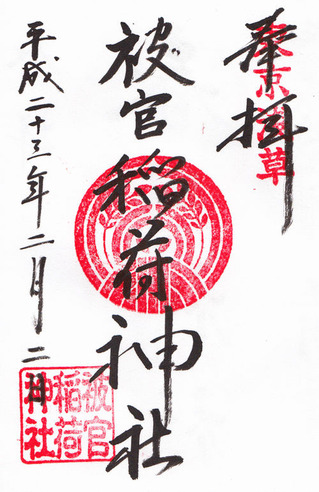 奉拝
東京浅草
被官稲荷神社
平成二十三年二月二日
被官
稲荷
神社